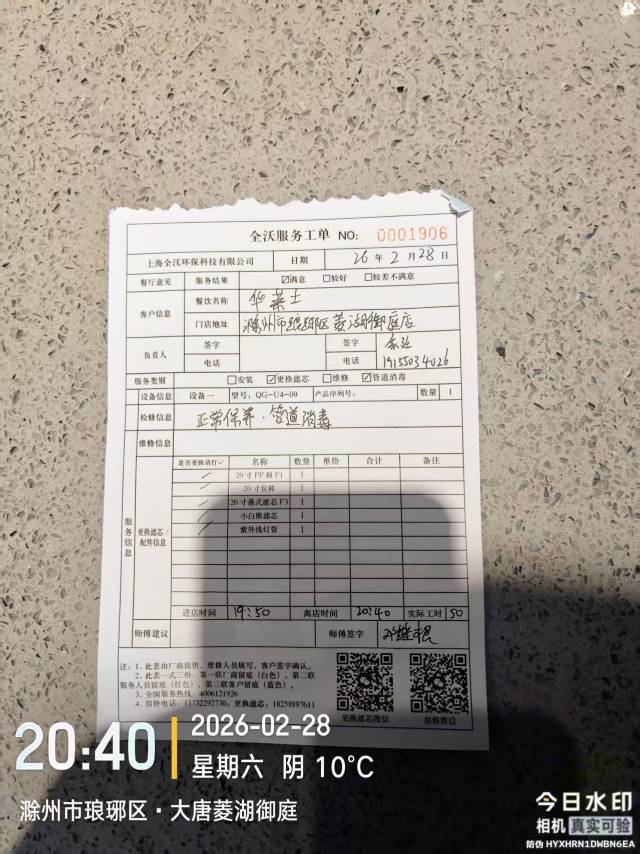 全沃服务工单 NO: 0001906
上海全沃环保科技有限公司 日期 26 年 2 月 28 日
餐厅意见 服务结果 ☑满意 □较好 □较差不满意
客户信息 餐饮名称 华莱士
门店地址 滁州市琅琊区菱湖御庭店
负责人 签字 签字
电话 电话 19155034026
服务类别 □安装 ☑更换滤芯 □维修 ☑管道消毒
设备信息 设备一 型号: QG-U4-09 产品序列号: 数量 1
检修信息 正常保养、管道消毒
维修信息
服务信息
更换滤芯/配件信息
是否更换请打✓ 名称 数量 单价 合计 备注
✓ 20寸PP棉F1 1
✓ 20寸炭棒 1
✓ 20寸叠式滤芯F3 1
✓ 小白熊滤芯 1
✓ 紫外线灯管 1
进店时间 19:50 离店时间 20:40 实际工时 50
师傅建议 师傅签字
注: 1、此表由厂商提供、维修人员填写、客户签字确认。
2、此表一式三份、第一联厂商留底(白色)、第二联
服务人员留底(红色)、第三联客户留底(蓝色)。
3、全国服务热线: 4006121926
4、报修电话: 13732292730; 更换滤芯: 18258897611
更换滤芯微信 报修微信
20:40 2026-02-28
星期六 阴 10°C
滁州市琅琊区·大唐菱湖御庭
今日水印
相机 真实可验
防伪 HYXHRN1DWBN6EA